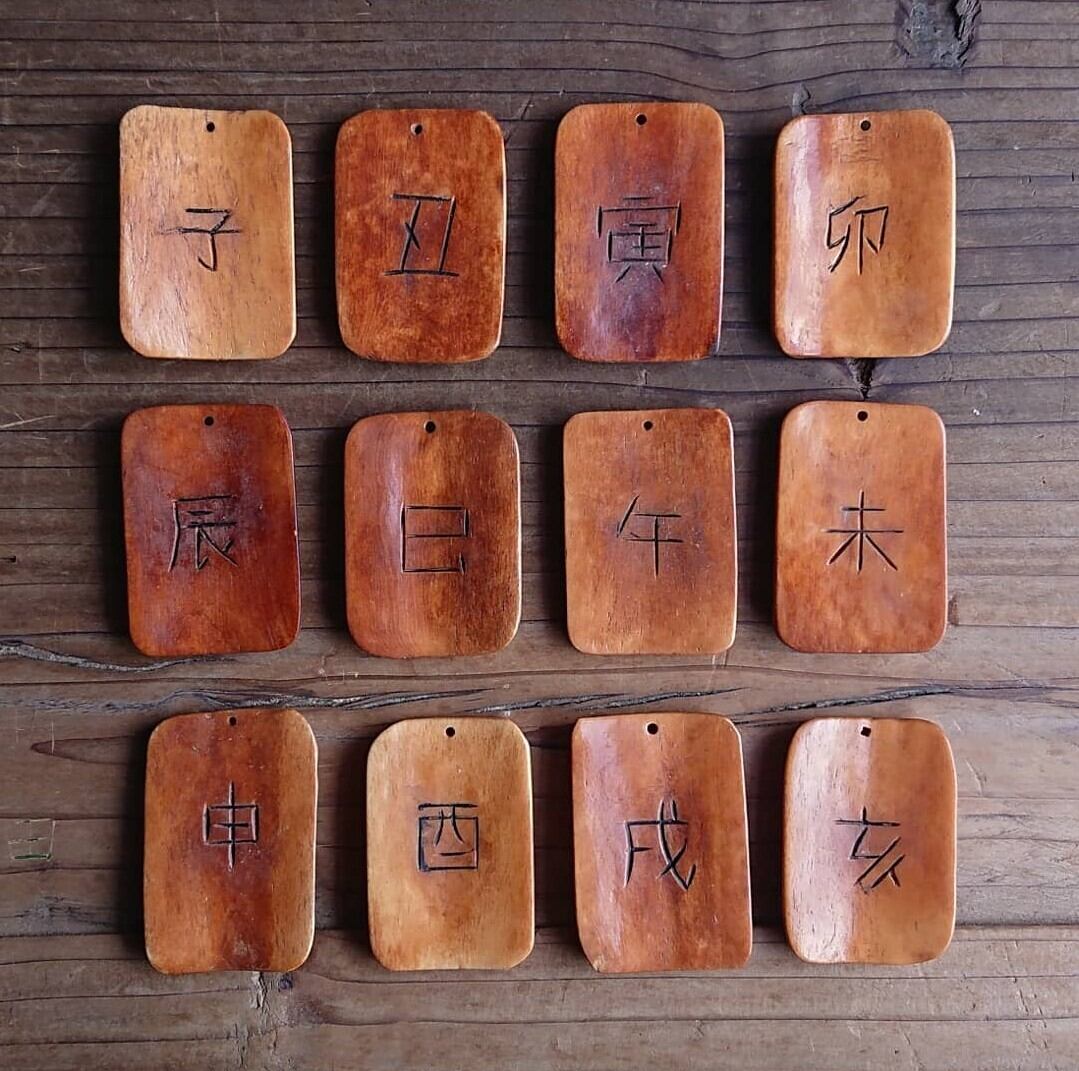 子 丑 寅 卯
辰 巳 午 未
申 酉 戌 亥